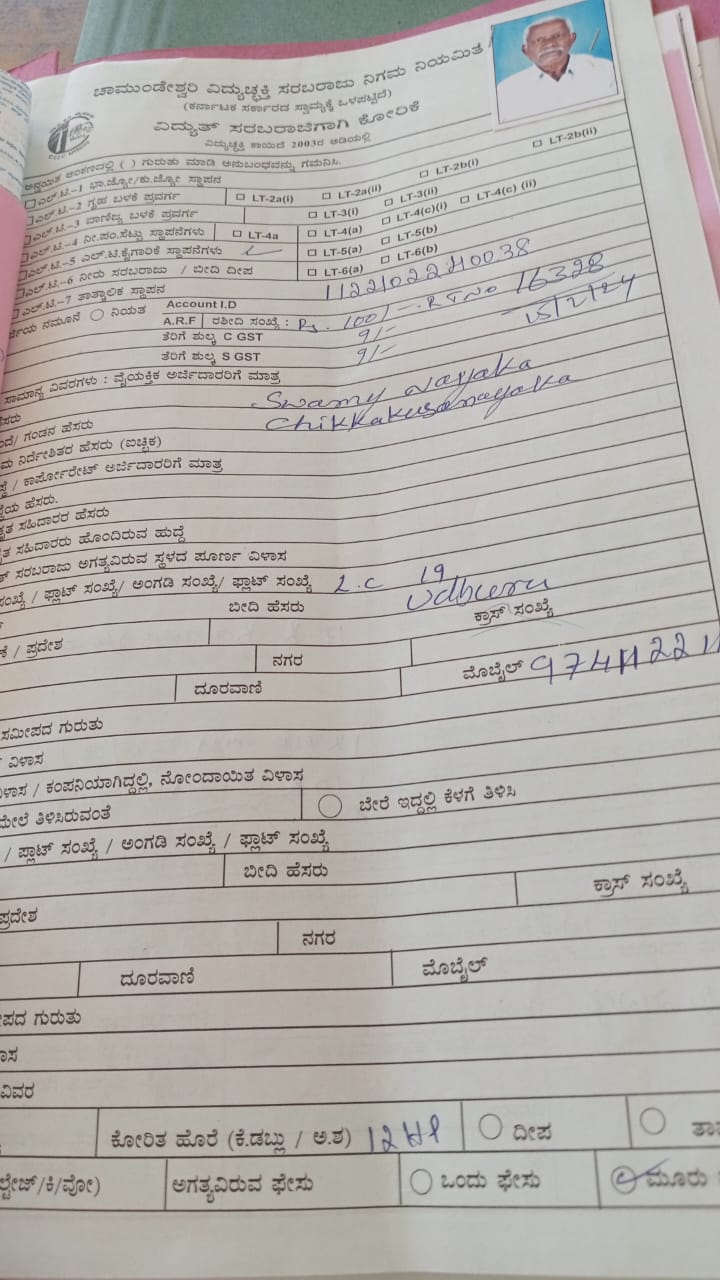 ಚಾಮುಂಡೇಶ್ವರಿ ವಿದ್ಯುಚ್ಛಕ್ತಿ ಸರಬರಾಜು ನಿಗಮ ನಿಯಮಿತ
(ಕರ್ನಾಟಕ ಸರ್ಕಾರದ ಸ್ವಾಮ್ಯಕ್ಕೆ ಒಳಪಟ್ಟಿದೆ)
ವಿದ್ಯುತ್ ಸರಬರಾಜಿಗಾಗಿ ಕೋರಿಕೆ
ವಿದ್ಯುಚ್ಛಕ್ತಿ ಕಾಯಿದೆ 2003ರ ಅಡಿಯಲ್ಲಿ
ಅನ್ವಯಿತ ಅಂಕಣದಲ್ಲಿ ( ) ಗುರುತು ಮಾಡಿ ಅನುಬಂಧವನ್ನು ಗಮನಿಸಿ.
ಎಲ್.ಟಿ.-1 ಭಾ.ಜ್ಯೋ/ಕು.ಜ್ಯೋ ಸ್ಥಾಪನ
ಎಲ್.ಟಿ.-2 ಗೃಹ ಬಳಕೆ ಪ್ರವರ್ಗ LT-2a(i) LT-2a(ii) LT-2b(i) LT-2b(ii)
ಎಲ್.ಟಿ.-3 ವಾಣಿಜ್ಯ ಬಳಕೆ ಪ್ರವರ್ಗ LT-3(i) LT-3(ii)
ಎಲ್.ಟಿ.-4 ನೀ.ಪಂ.ಸೆಟ್ಟು ಸ್ಥಾಪನೆಗಳು LT-4a LT-4(a) LT-4(c)(i) LT-4(c) (ii)
ಎಲ್.ಟಿ.-5 ಎಲ್.ಟಿ.ಕೈಗಾರಿಕೆ ಸ್ಥಾಪನೆಗಳು LT-5(a) LT-5(b)
ಎಲ್.ಟಿ.-6 ನೀರು ಸರಬರಾಜು / ಬೀದಿ ದೀಪ LT-6(a) LT-6(b)
ಎಲ್.ಟಿ.-7 ತಾತ್ಕಾಲಿಕ ಸ್ಥಾಪನ
ನಮೂನೆ ನಿಯತ Account I.D
A.R.F ರಶೀದಿ ಸಂಖ್ಯೆ : Rs. 100/- RT NO 16328
ತೆರಿಗೆ ಶುಲ್ಕ C GST 9/- 15/2/24
ತೆರಿಗೆ ಶುಲ್ಕ S GST 9/-
ಸಾಮಾನ್ಯ ವಿವರಗಳು : ವೈಯಕ್ತಿಕ ಅರ್ಜಿದಾರರಿಗೆ ಮಾತ್ರ
Swamy Nayaka
ಗಂಡನ ಹೆಸರು
ನಿರ್ದೇಶಿತರ ಹೆಸರು (ಐಚ್ಛಿಕ)
/ ಕಾರ್ಪೋರೇಟ್ ಅರ್ಜಿದಾರರಿಗೆ ಮಾತ್ರ
ಹೆಸರು.
ಸಹಿದಾರರ ಹೆಸರು
ಸಹಿದಾರರು ಹೊಂದಿರುವ ಹುದ್ದೆ
ಸರಬರಾಜು ಅಗತ್ಯವಿರುವ ಸ್ಥಳದ ಪೂರ್ಣ ವಿಳಾಸ
/ ಫ್ಲಾಟ್ ಸಂಖ್ಯೆ/ ಅಂಗಡಿ ಸಂಖ್ಯೆ/ ಫ್ಲಾಟ್ ಸಂಖ್ಯೆ 19
ಬೀದಿ ಹೆಸರು
/ ಪ್ರದೇಶ ಕ್ರಾಸ್ ಸಂಖ್ಯೆ
ನಗರ
ದೂರವಾಣಿ ಮೊಬೈಲ್
ಸಮೀಪದ ಗುರುತು
ವಿಳಾಸ
/ ಕಂಪನಿಯಾಗಿದ್ದಲ್ಲಿ, ನೋಂದಾಯಿತ ವಿಳಾಸ
ತಿಳಿಸಿರುವಂತೆ ಬೇರೆ ಇದ್ದಲ್ಲಿ ಕೆಳಗೆ ತಿಳಿಸಿ
/ ಪ್ಲಾಟ್ ಸಂಖ್ಯೆ / ಅಂಗಡಿ ಸಂಖ್ಯೆ / ಫ್ಲಾಟ್ ಸಂಖ್ಯೆ
ಬೀದಿ ಹೆಸರು
ಪ್ರದೇಶ ಕ್ರಾಸ್ ಸಂಖ್ಯೆ
ನಗರ
ದೂರವಾಣಿ ಮೊಬೈಲ್
ಗುರುತು
ವಿವರ
ಕೋರಿತ ಹೊರೆ (ಕೆ.ಡಬ್ಲು / ಅ.ಶ) 12 HP ದೀಪ
ಅಗತ್ಯವಿರುವ ಫೇಸು ಒಂದು ಫೇಸು ಮೂರು